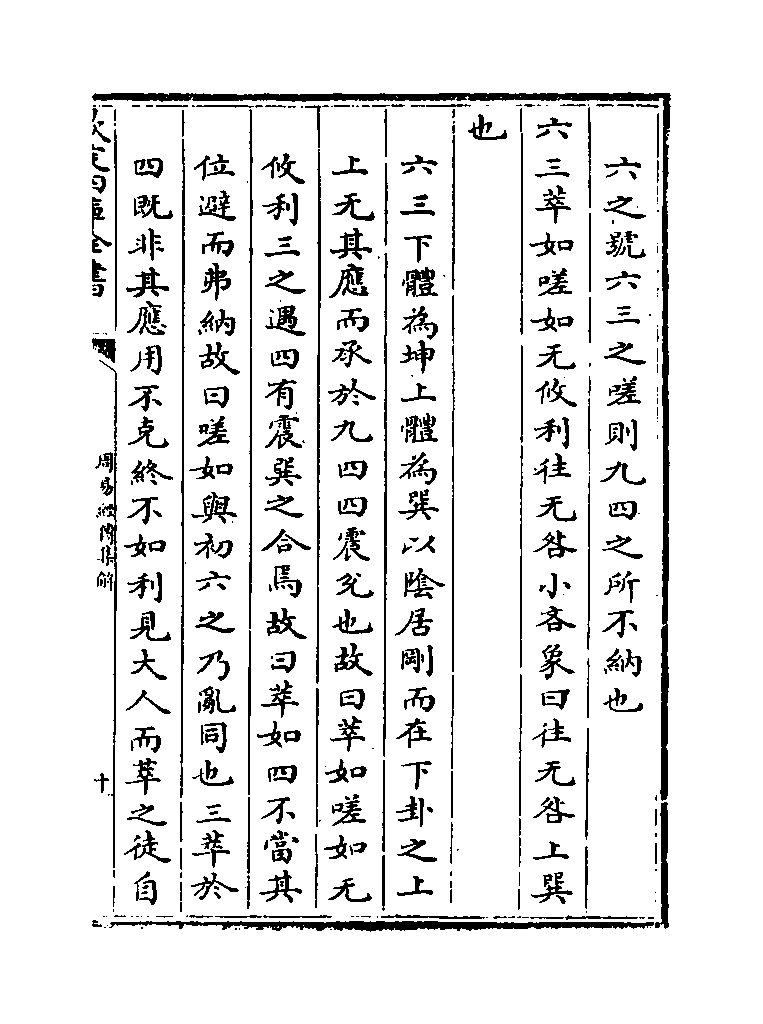 六之號六三之嗟則九四之所不納也
六三萃如嗟如无攸利往无咎小吝象曰往无咎上巽
也
六三下體為坤上體為巽以陰居剛而在下卦之上
上无其應而承於九四四震兊也故曰萃如嗟如无
攸利三之遇四有震巽之合焉故曰萃如四不當其
位避而弗納故曰嗟如與初六之乃亂同也三萃於
四既非其應用不克終不如利見大人而萃之徒自
欽定四庫全書
周易經傳集解
十